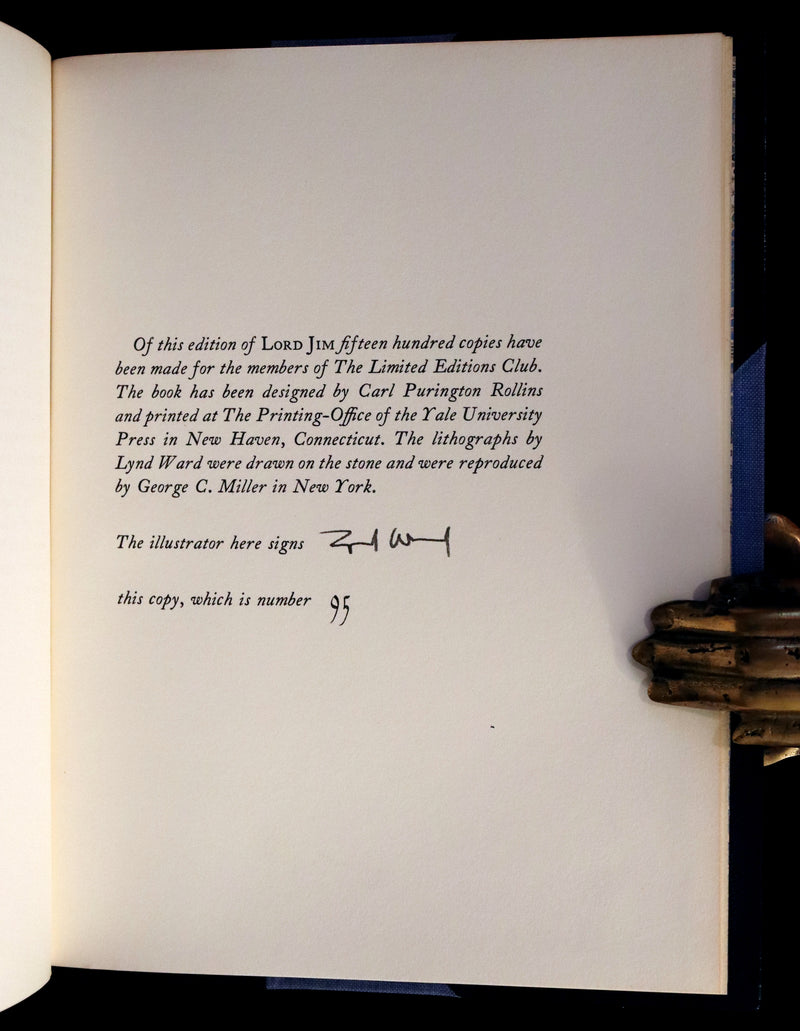 Of this edition of LORD JIM fifteen hundred copies have
been made for the members of The Limited Editions Club.
The book has been designed by Carl Purington Rollins
and printed at The Printing-Office of the Yale University
Press in New Haven, Connecticut. The lithographs by
Lynd Ward were drawn on the stone and were reproduced
by George C. Miller in New York.
The illustrator here signs Lynd Ward
this copy, which is number 95